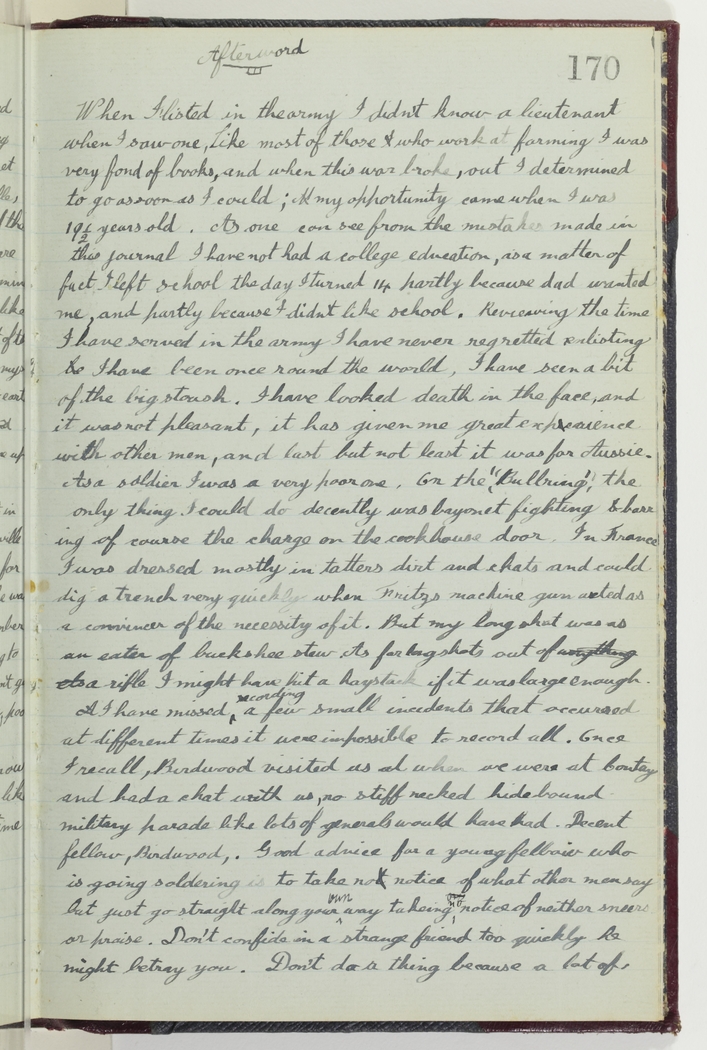 Afterword
170
When I listed in the army I didnt know a lieutenant
when I saw one, Like most of those & who work at farming I was
very fond of books, and when this war broke, out I determined
to go as soon as I could ; & my opportunity came when I was
19½ years old . As one can see from the mistakes made in
this journal I have not had a college education, as a matter of
fact I left school the day I turned 14 partly because dad wanted
me, and partly because I didnt like school . Reviewing the time
I have served in the army I have never regretted enlisting
I have been once round the world, I have seen a bit
of the big stoush . I have looked death in the face, and
it was not pleasant, it has given me great expierience
with other men, and last but not least it was for Aussie.
As a soldier I was a very poor one . On the "Bullring", the
only thing I could do decently was bayonet fighting & barr
ing of course the charge on the cookhouse door . In France
I was dressed mostly in tatters dirt and chats and could
dig a trench very quickly when Fritzs machine gun acted as
a convincer of the necessity of it . But my long shot was as
an eater of buckshee stew. As for long shots out of anything
a rifle I might have hit a haystack if it was large enough .
I have missed, recording a few small incidents that occurred
at different times it were impossible to record all . Once
I recall, Birdwood visited us when we were at Contay
and had a chat with us, no stiff necked hide bound
military parade like lots of generals would have had . Decent
fellow, Birdwood, . Good advice for a young fellow who
is going soldering is to take not notice of what other men say
but just go straight along your own way takeing no notice of neither sneers
or praise . Don't confide in a strange friend too quickly he
might betray you . Don't do a thing because a lot of